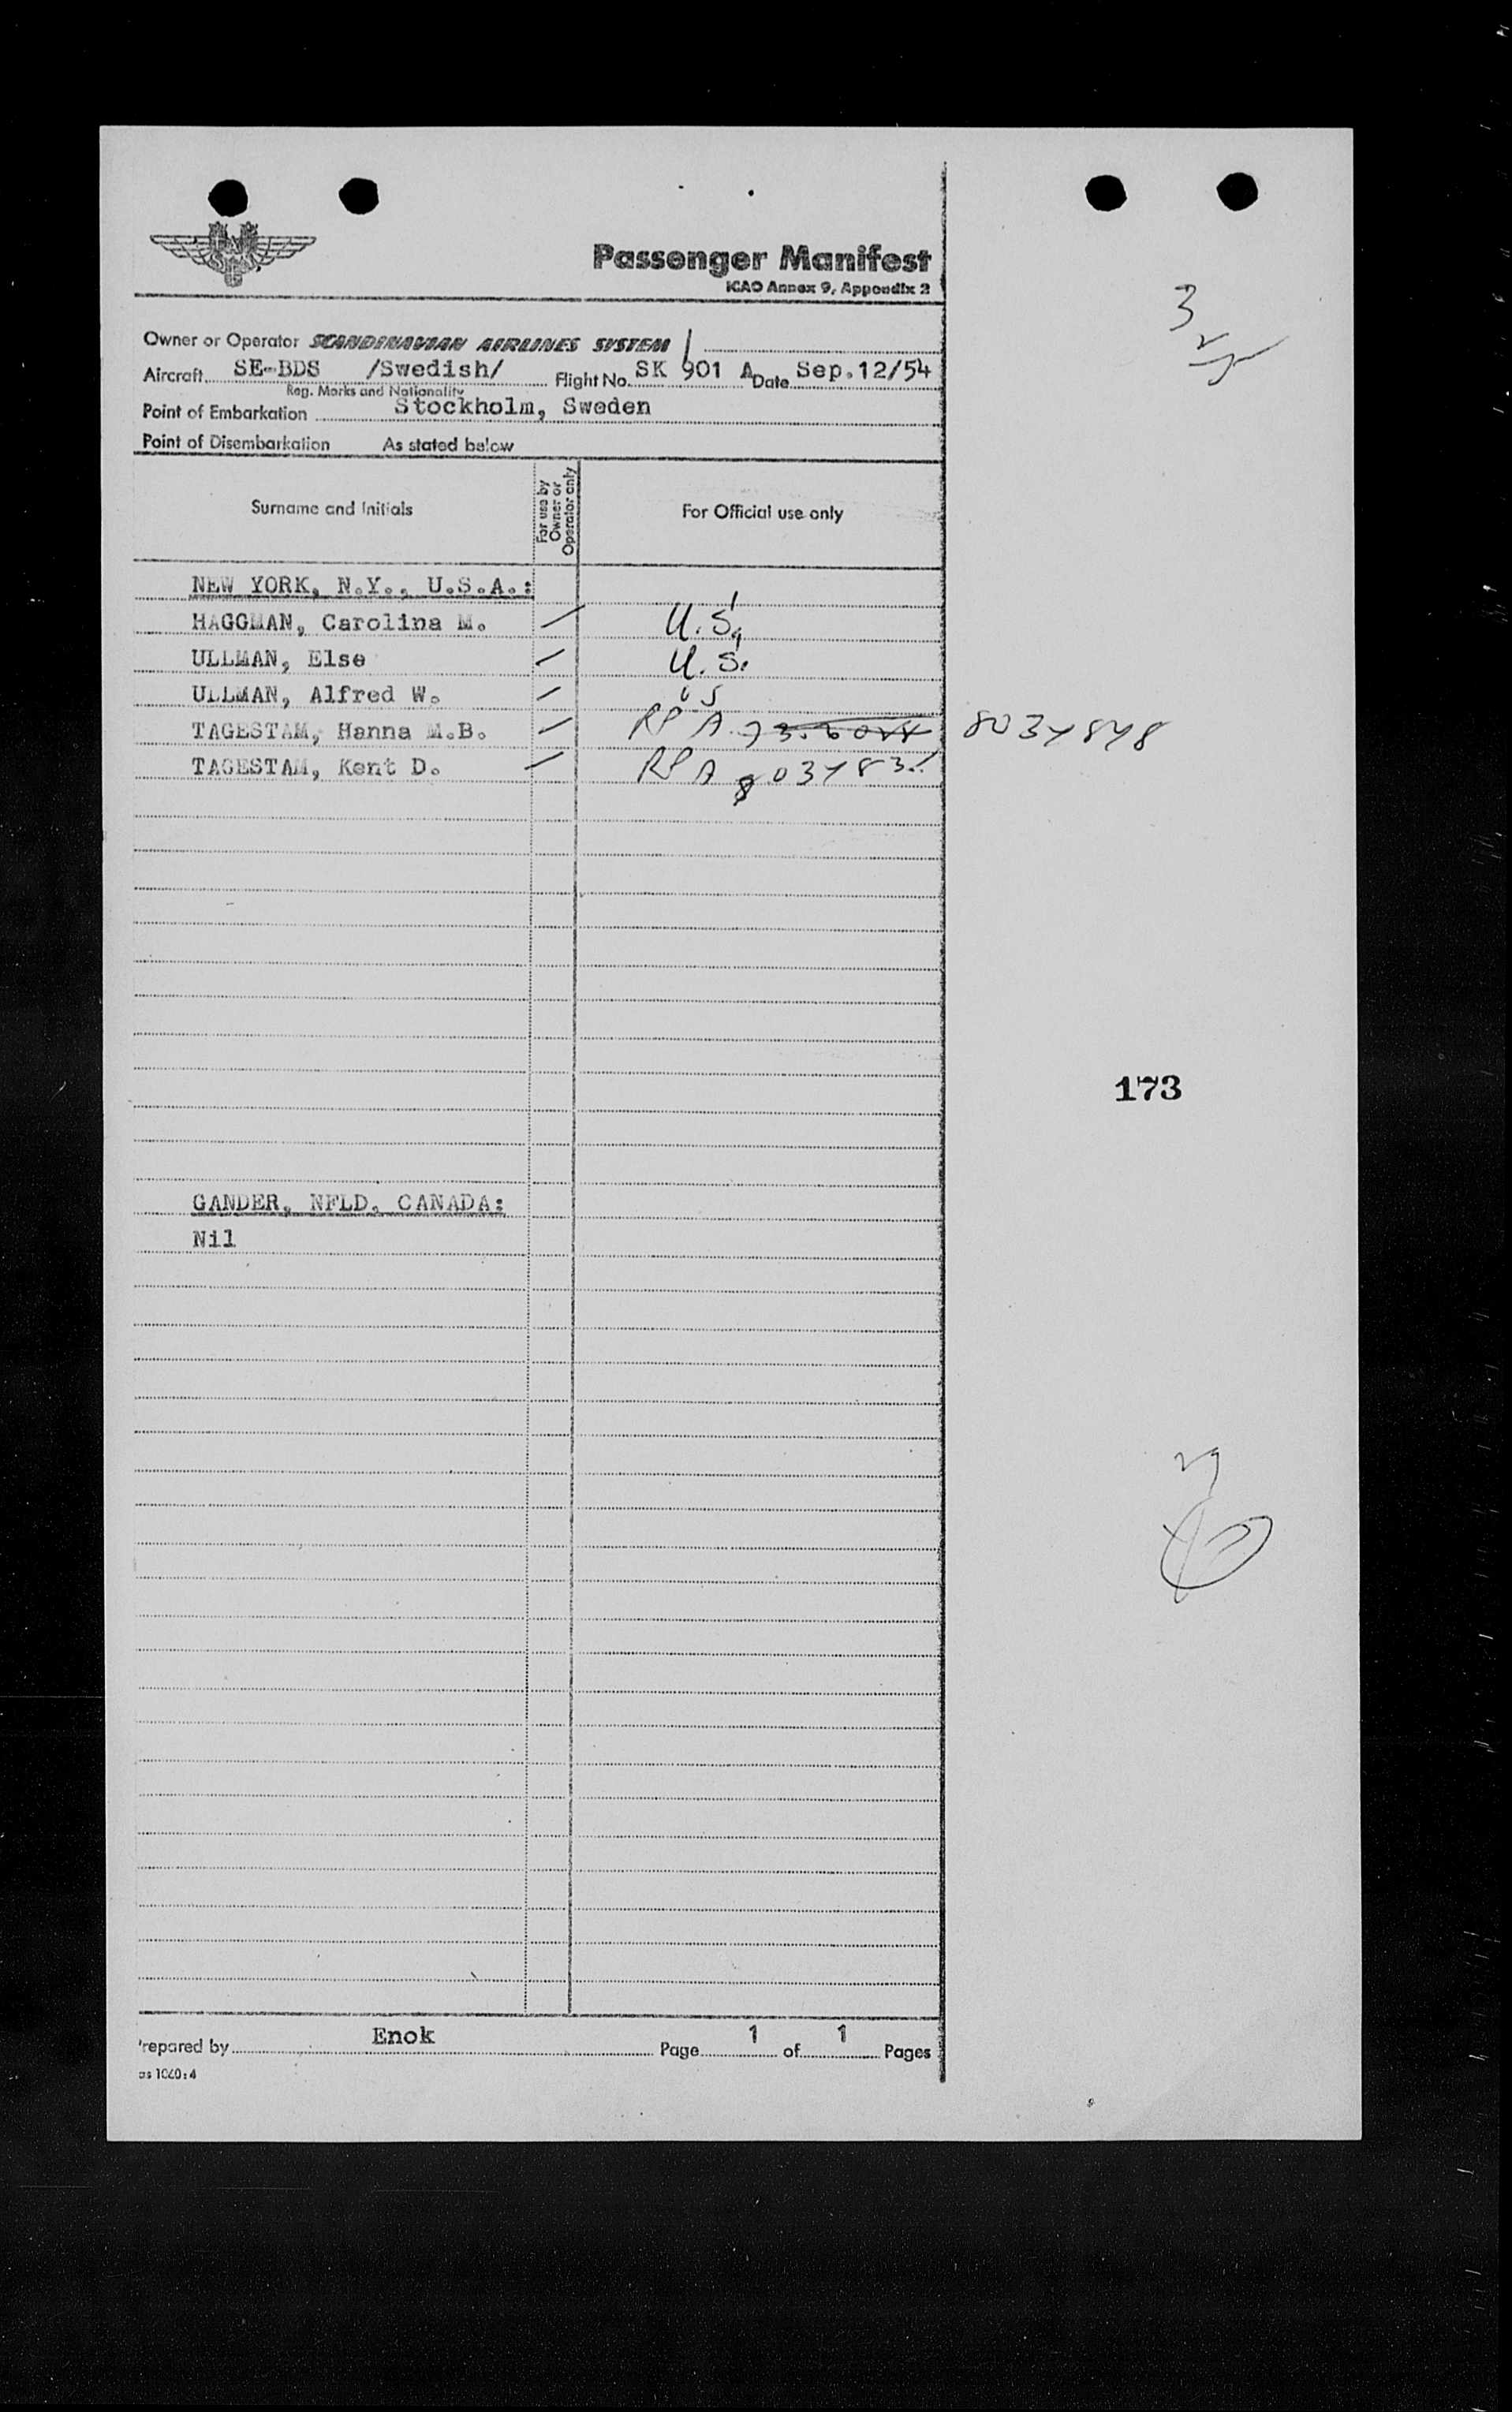 SAS
Passenger Manifest
ICAO Annex 9, Appendix 2
3
2
5
Owner or Operator SCANDINAVIAN AIRLINES SYSTEM
Aircraft SE-BDS /Swedish/ Flight No. SK 901 A Date Sep.12/54
Reg. Marks and Nationality
Point of Embarkation Stockholm, Sweden
Point of Disembarkation As stated below
Surname and Initials
For use by Owner or Operator only
For Official use only
NEW YORK, N.Y., U.S.A.:
HAGGMAN, Carolina M. U.S.
ULLMAN, Else U.S.
ULLMAN, Alfred W. US
TAGESTAM, Hanna M.B. RPA
TAGESTAM, Kent D. RPA
173
GANDER, NFLD, CANADA:
Nil
Prepared by Enok Page 1 of 1 Pages